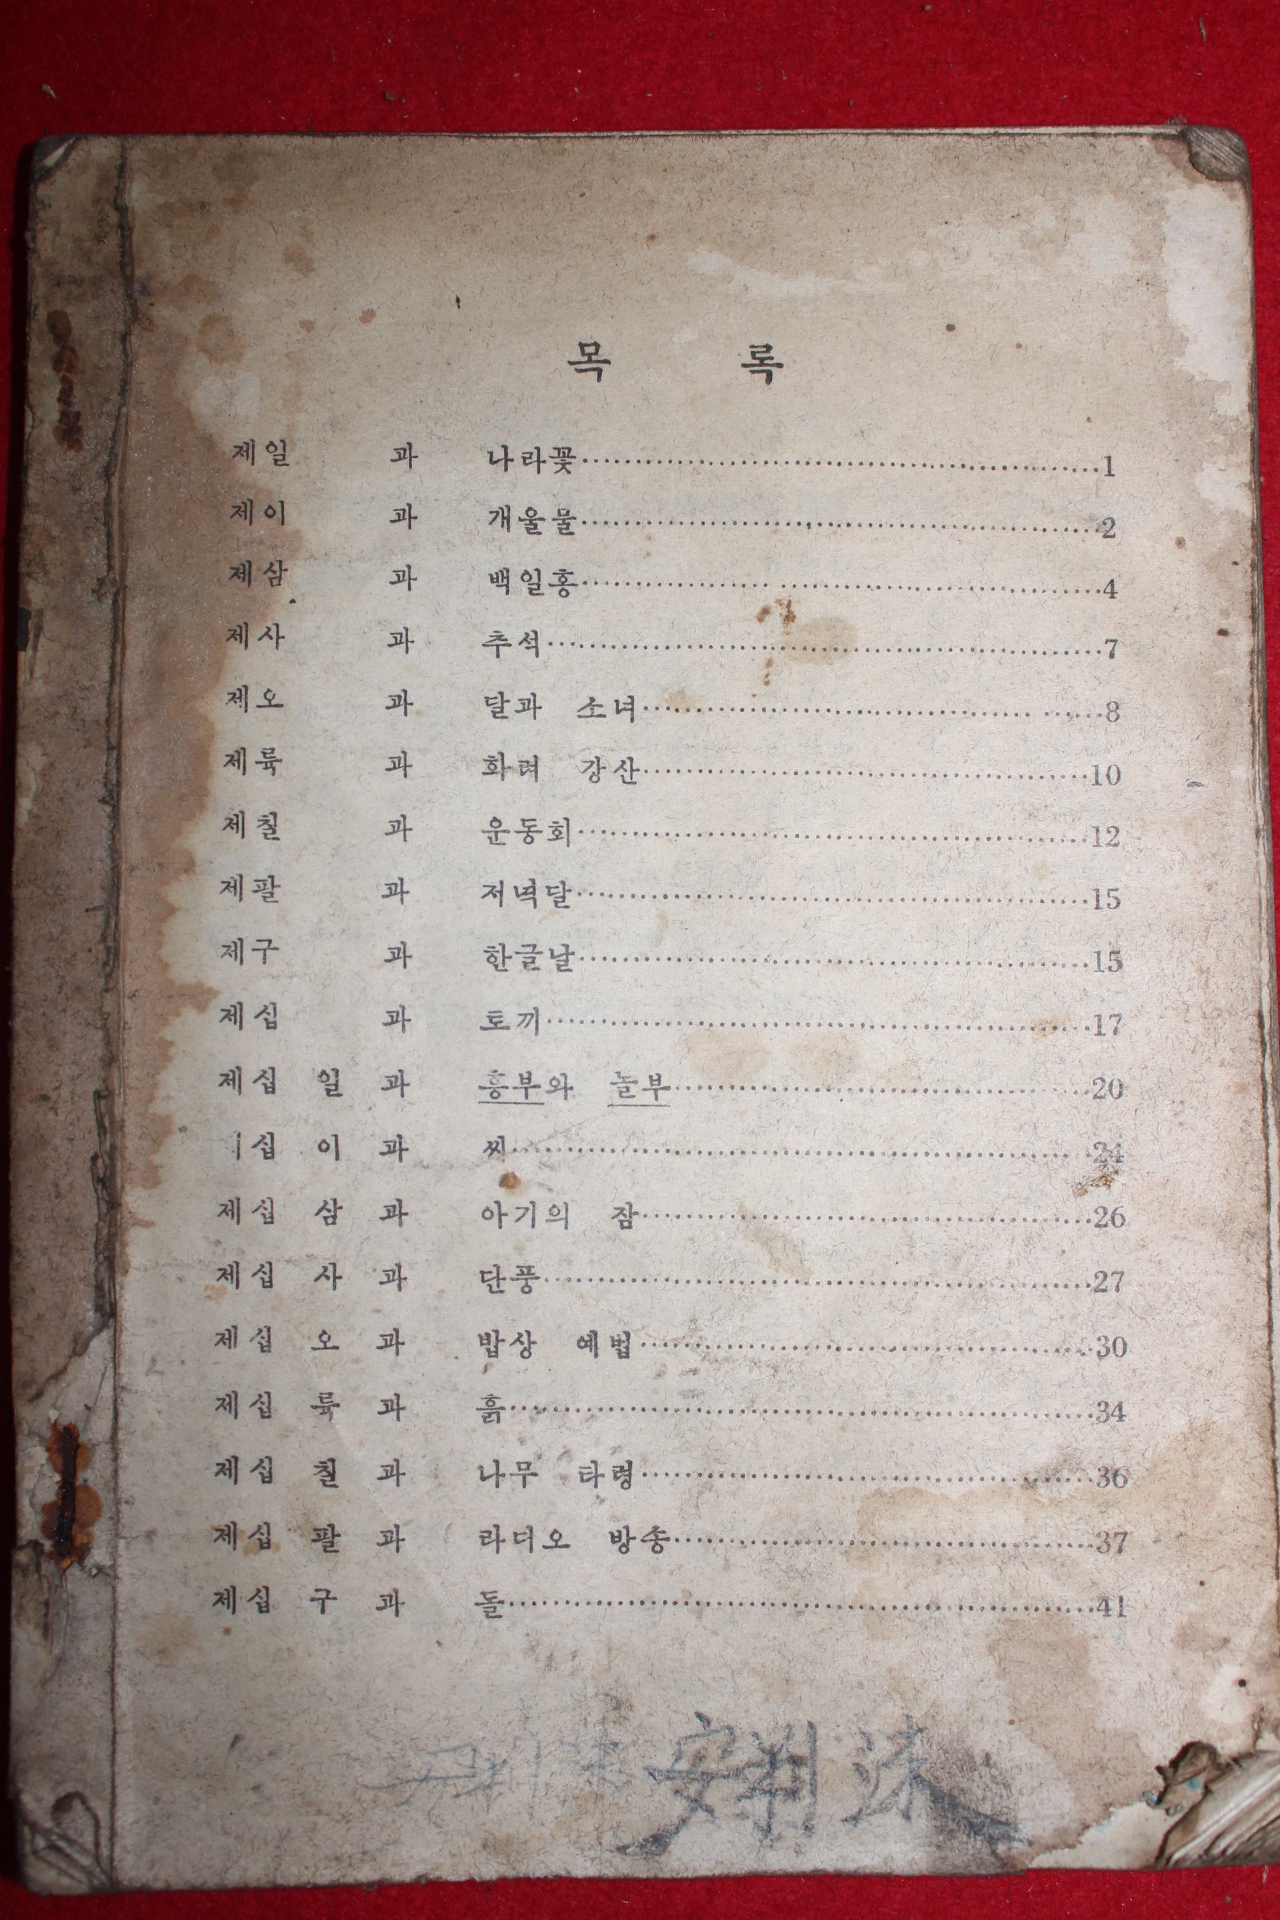 목 록
제일 과 나라꽃 1
제이 과 개울물 2
제삼 과 백일홍 4
제사 과 추석 7
제오 과 달과 소녀 8
제륙 과 화려 강산 10
제칠 과 운동회 12
제팔 과 저녁달 15
제구 과 한글날 15
제십 과 토끼 17
제십 일 과 흥부와 놀부 20
십 이 과 씨 24
제십 삼 과 아기의 잠 26
제십 사 과 단풍 27
제십 오 과 밥상 예법 30
제십 륙 과 흙 34
제십 칠 과 나무 타령 36
제십 팔 과 라디오 방송 37
제십 구 과 돌 41
安荆洙